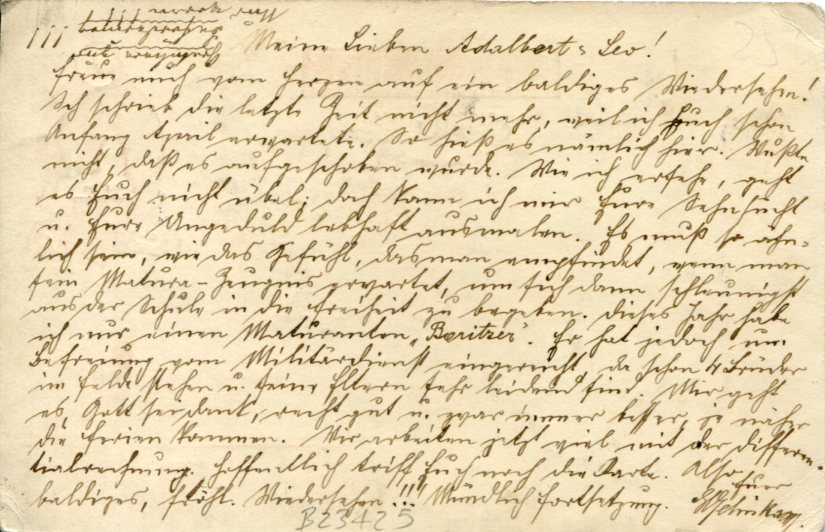 Meine Lieben Adalbert u. Leo!
Freue mich vom Herzen auf ein baldiges Wiedersehen!
Ich schrieb die letzte Zeit nicht mehr, weil ich Euch schon
Anfang April erwartete. So hieß es nämlich hier. Wußte
nicht, daß es aufgeschoben wurde. Wie ich ersehe, geht
es Euch nicht übel; doch kann ich mir Eure Sehnsucht
u. Eure Ungeduld lebhaft ausmalen. Es muß so ähn-
lich sein, wie das Gefühl, das man empfindet, wenn man
sein Matura-Zeugnis erwartet, um sich dann schleunigst
aus der Schule in die Freiheit zu begeben. Dieses Jahr habe
ich nur einen Maturanten „Beritzer“. Er hat jedoch um
Befreiung vom Militärdienst eingereicht, da schon 4 Brüder
im Felde stehen u. seine Eltern sehr leidend sind. Mir geht
es Gott sei dank, recht gut u. zwar immer besser, je näher
die Ferien kommen. Wir arbeiten jetzt viel mit der Differen-
tialrechnung. Hoffentlich trifft Euch noch die Karte. Also
baldiges, fröhl. Wiedersehen!!! Mündlich Fortsetzung. Euer
B23425
25